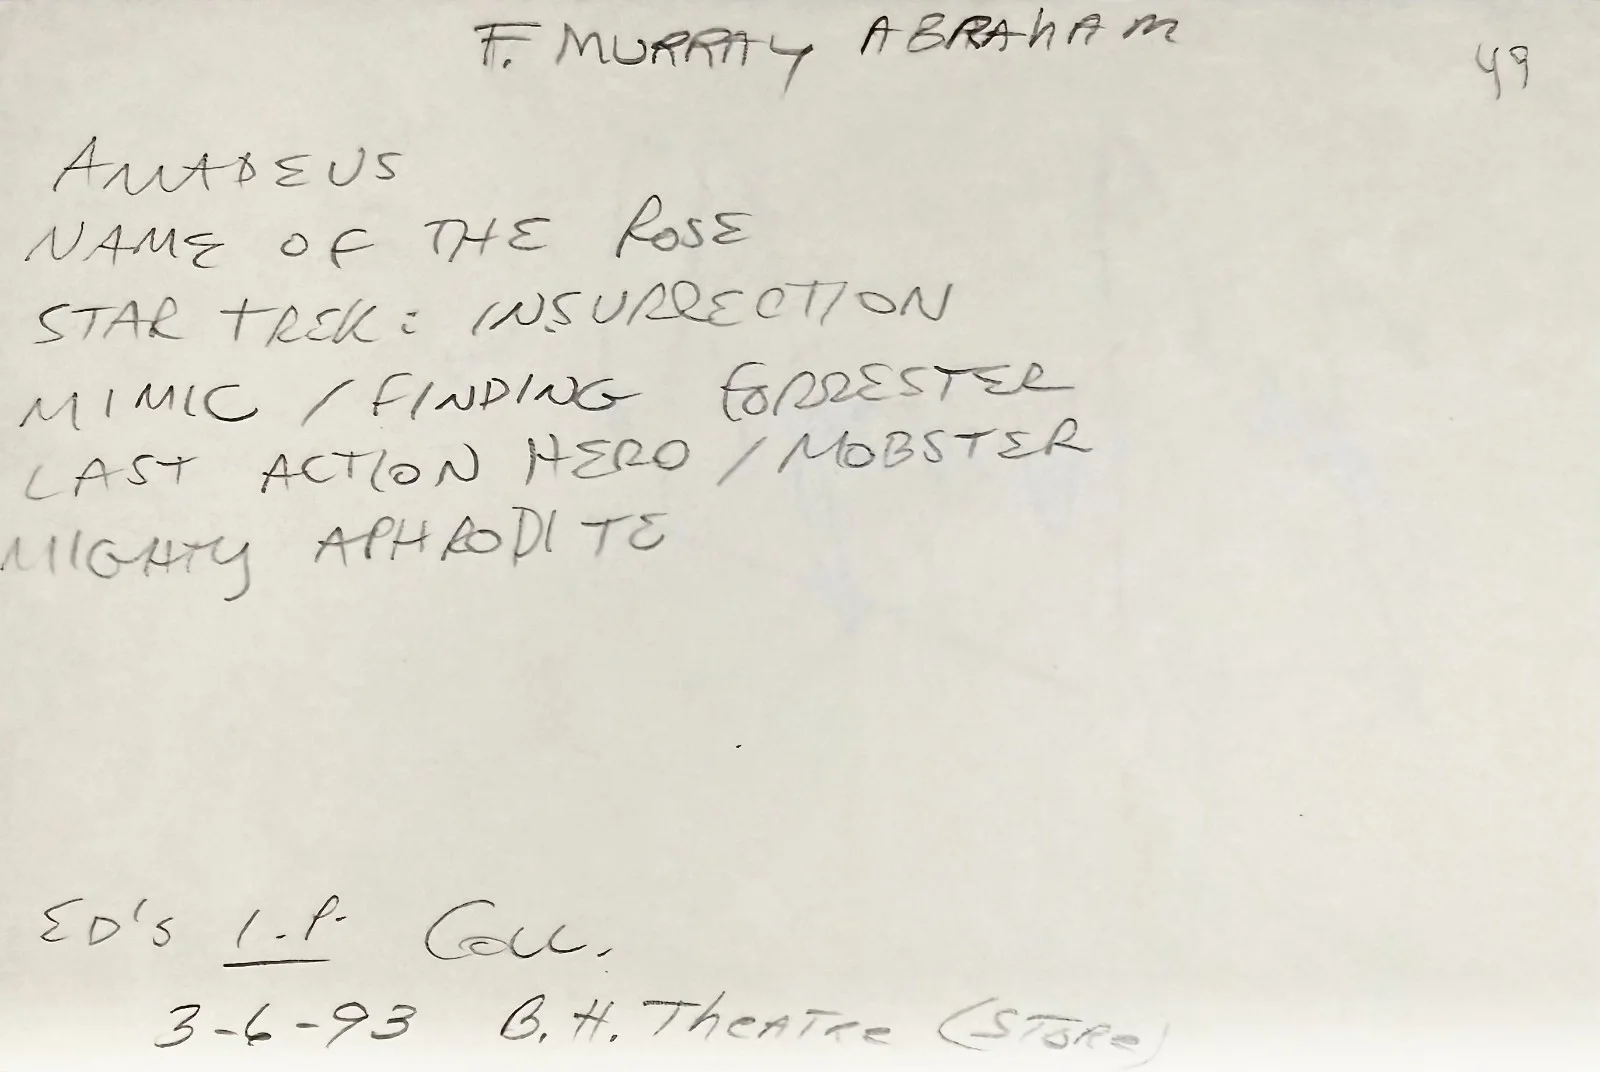 F. MURRAY ABRAHAM
49
AMADEUS
NAME OF THE ROSE
STAR TREK: INSURRECTION
MIMIC / FINDING FORRESTER
LAST ACTION HERO / MOBSTER
MIGHTY APHRODITE
ED'S I.P. COLL.
3-6-93 B.H. THEATRE (STORE)